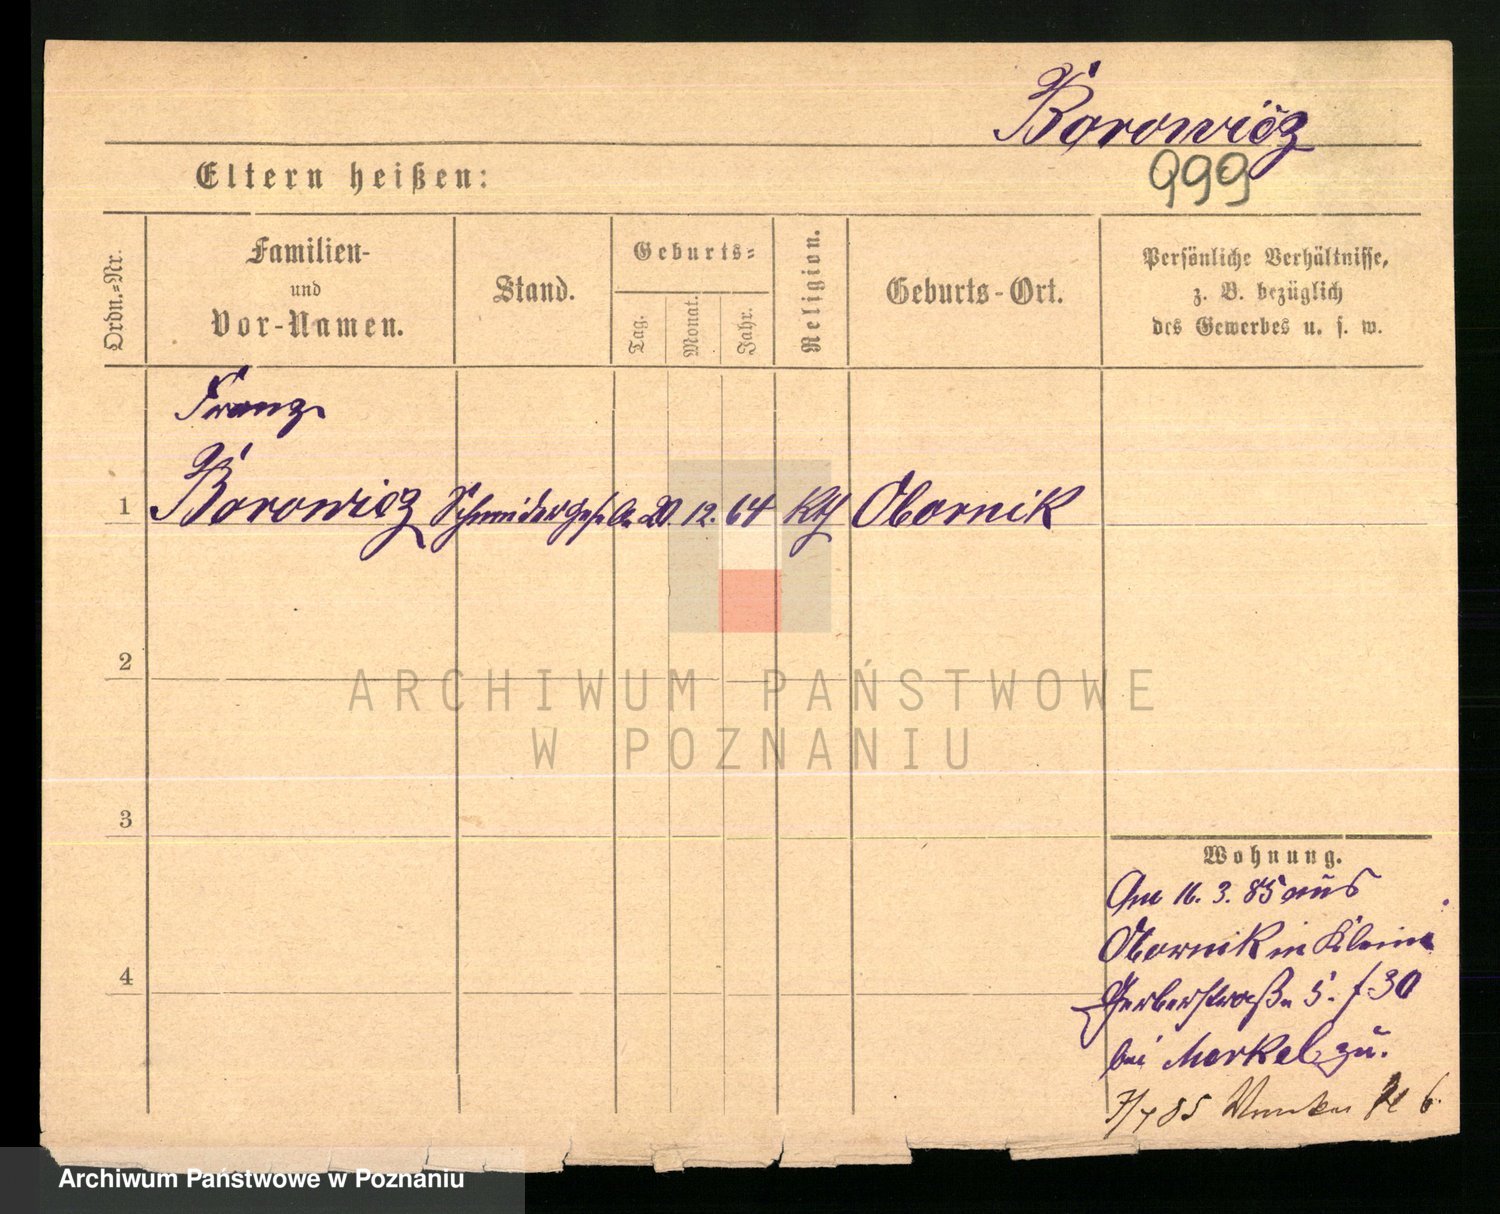 Borowicz
999
Eltern heißen:
Ordn.-Nr.
Familien-
und
Vor-Namen.
Stand.
Geburts-
Tag.
Monat.
Jahr.
Religion.
Geburts-Ort.
Persönliche Verhältnisse,
z. B. bezüglich
des Gewerbes u. s. w.
Franz
1 Borowicz Schneidergeselle 20. 12. 64 Kth Obornik
2
3
4
ARCHIWUM PAŃSTWOWE
W POZNANIU
Wohnung.
Am 16. 3. 85 aus
Obornik in Kleine
Gerberstraße 5. f 30
bei Merkel zu.
7/7 85 6.
Archiwum Państwowe w Poznaniu